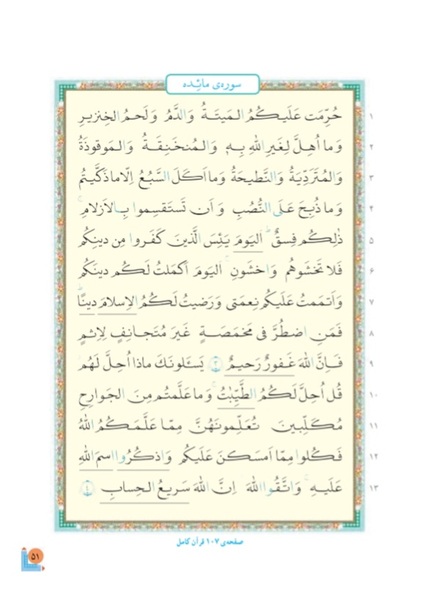 سوره‌ی مائده
حُرِّمَت عَلَيكُمُ المَيتَةُ وَالدَّمُ وَ لَحمُ الخِنزيرِ ۱
وَ ما اُهِلَّ لِغَيرِ اللّٰهِ بِهٖ وَ المُنخَنِقَةُ وَ المَوقوذَةُ ۲
وَ المُتَرَدِّيَةُ وَ النَّطيحَةُ وَ ما اَكَلَ السَّبُعُ اِلّا ما ذَكَّيتُم ۳
وَ ما ذُبِحَ عَلَى النُّصُبِ وَ اَن تَستَقسِموا بِالاَزلامِ ۴
ذٰلِكُم فِسقٌ اَليَومَ يَئِسَ الَّذينَ كَفَروا مِن دينِكُم ۵
فَلا تَخشَوهُم وَ اخشَونِ اَليَومَ اَكمَلتُ لَكُم دينَكُم ۶
وَ اَتمَمتُ عَلَيكُم نِعمَتى وَ رَضيتُ لَكُمُ الاِسلامَ دينًا ۷
فَمَنِ اضطُرَّ فى مَخمَصَةٍ غَيرَ مُتَجانِفٍ لِاِثمٍ ۸
فَاِنَّ اللّٰهَ غَفورٌ رَحيمٌ ﴿۳﴾ يَسـَٔلونَكَ ماذا اُحِلَّ لَهُم ۹
قُل اُحِلَّ لَكُمُ الطَّيِّبٰتُ وَ ما عَلَّمتُم مِنَ الجَوارِحِ ۱۰
مُكَلِّبينَ تُعَلِّمونَهُنَّ مِمّا عَلَّمَكُمُ اللّٰهُ ۱۱
فَكُلوا مِمّا اَمسَكنَ عَلَيكُم وَ اذكُرُوا اسمَ اللّٰهِ ۱۲
عَلَيهِ وَ اتَّقُوا اللّٰهَ اِنَّ اللّٰهَ سَريعُ الحِسابِ ﴿۴﴾ ۱۳
صفحه‌ی ۱۰۷ قرآن کامل
۵۱